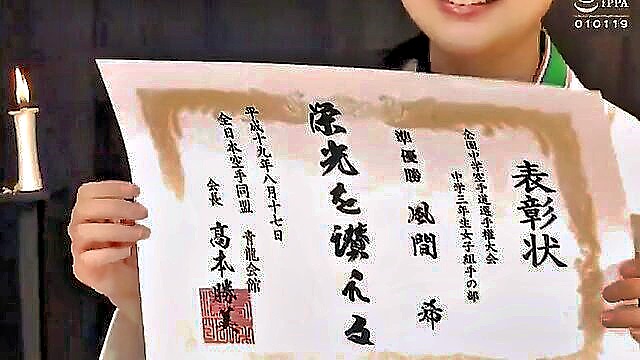 表彰状
全国中学空手道選手権大会
中学三年生女子組手の部
準優勝 風間 希
栄光を讃える
平成十九年八月十七日
全日本空手同盟 青龍会館
会長 高本勝美
IPPA
010119